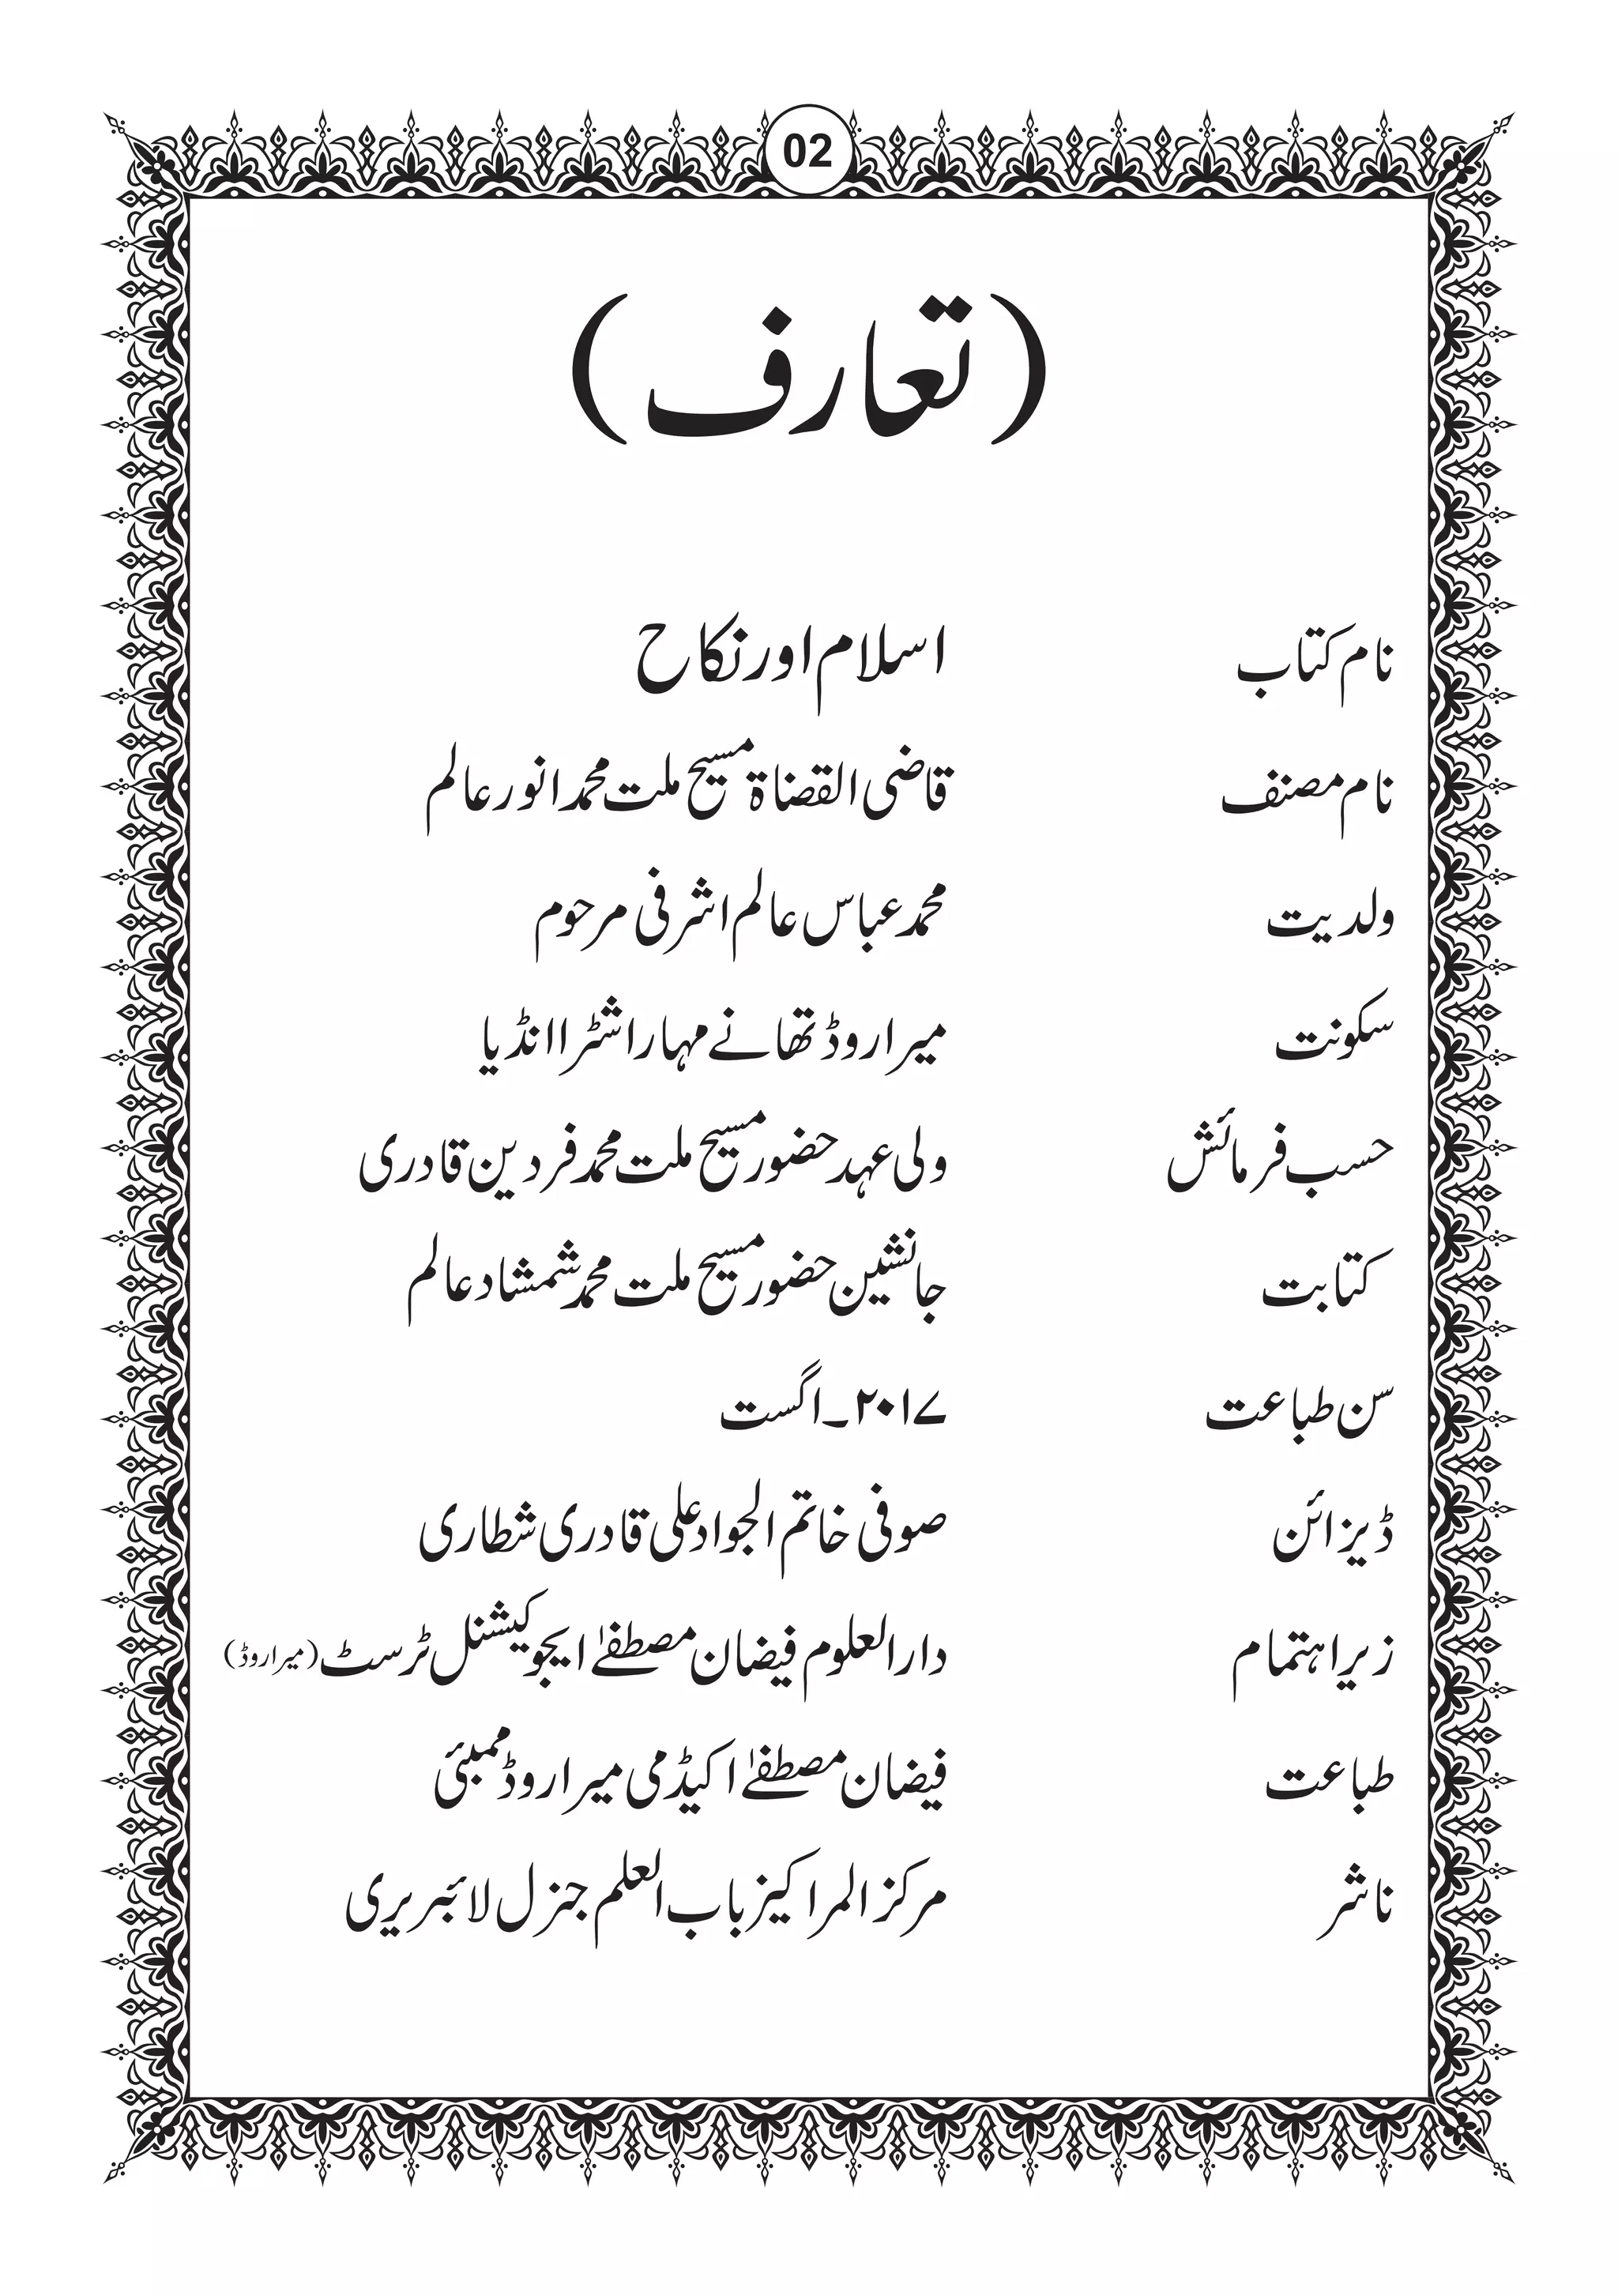 02
(تعارف)
نام کتاب اسلام اور نکاح
نام مصنف قاضی القضاۃ مسیح ملت محمد انور عالم
ولدیت محمد عباس عالم اشرفی مرحوم
سکونت میرا روڈ تھانے مہاراشٹرا انڈیا
حسب فرمائش ولی عہد حضور مسیح ملت محمد فردین قادری
کتابت جانشین حضور مسیح ملت محمد شمشاد عالم
سن طباعت ۲۰۱۷۔اگست
ڈیزائن صوفی خاتم الجواد علی قادری شطاری
زیر اہتمام دارالعلوم فیضان مصطفےٰ ایجوکیشنل ٹرسٹ (میرا روڈ)
طباعت فیضان مصطفےٰ اکیڈمی میرا روڈ ممبئی
ناشر مرکز المراکیز باب العلم جنرل لائبریری